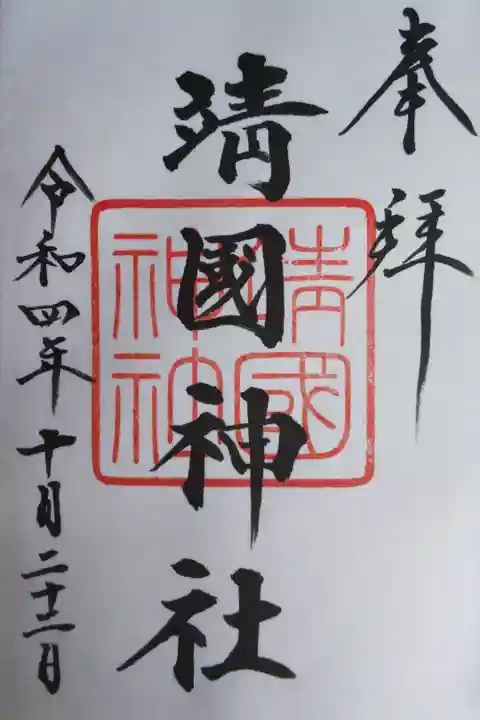 奉拝
靖國神社
令和四年十月二十二日
靖國
神社